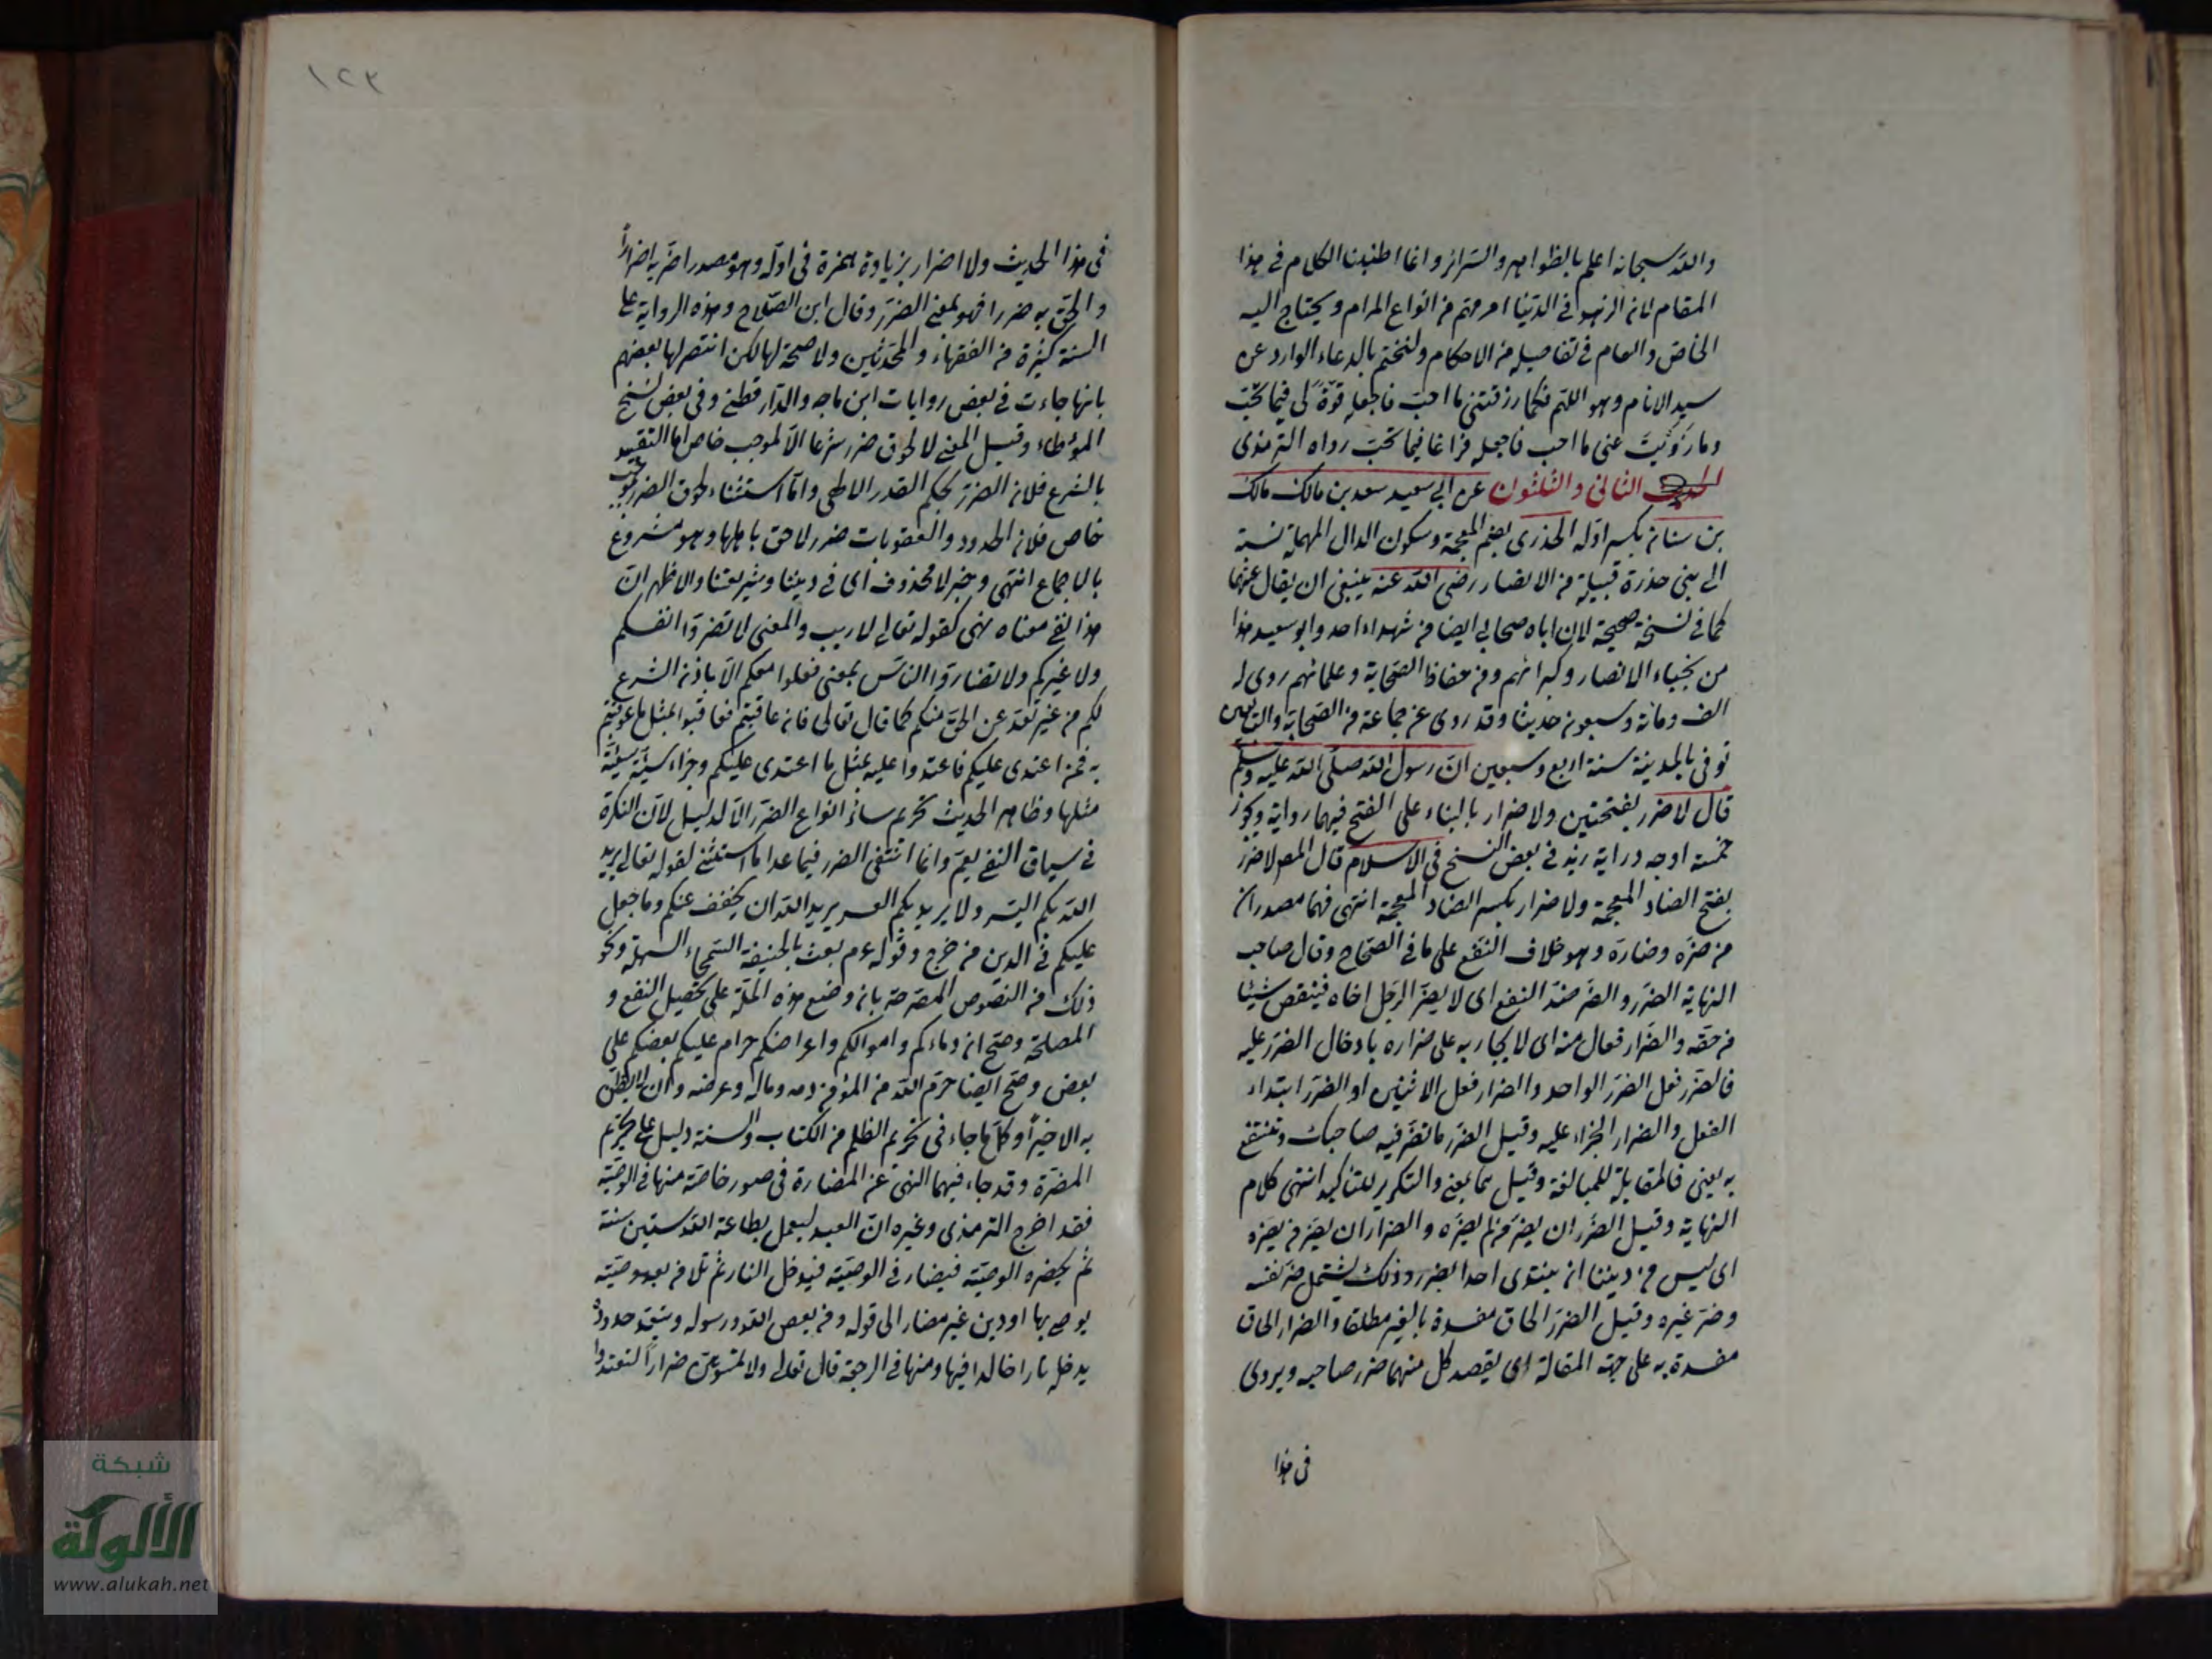 والله سبحانه اعلم بالظواهر والسرائر وانما اطنبنا الكلام في هذا
المقام لان الزهد في الدنيا امر مهم من انواع المرام ويحتاج اليه
الخاص والعام في تفاصيله من الاحكام ولنختم بالدعاء الوارد عن
سيد الانام وهو اللهم فكما رزقتني ما احب فاجعله قوة لي فيما تحب
وما زويت عني ما احب فاجعله فراغا فيما تحب رواه الترمذي
الحديث الثاني والثلثون عن ابي سعيد سعد بن مالك مالك
بن سنان بكسر اوله الخذري بضم المعجمة وسكون الدال المهملة نسبة
الى بني خذرة قبيلة من الانصار رضي الله عنه ينبغي ان يقال عنهما
كما في نسخة صحيحة لان اباه صحابي ايضا من شهداء احد وابو سعيد هذا
من نجباء الانصار وكبرائهم ومن حفاظ الصحابة وعلمائهم روى له
الف ومائة وسبعون حديثا وقد روى عن جماعة من الصحابة والتابعين
توفي بالمدينة سنة اربع وسبعين ان رسول الله صلى الله عليه وسلم
قال لا ضرر بفتحتين ولا ضرار بالبناء على الفتح فيهما رواية ويجوز
خمسة اوجه دراية زيد في بعض النسخ في الاسلام قال المص لا ضرر
بفتح الضاد المعجمة ولا ضرار بكسر الضاد المعجمة انتهى فهما مصدران
من ضره وضاره وهو خلاف النفع على ما في الصحاح وقال صاحب
النهاية الضرر والضر ضد النفع اى لا يضر الرجل اخاه فينقص شيئا
من حقه والضرار فعال منه اى لا يجازيه على ضراره بادخال الضرر عليه
فالضرر فعل الضرر الواحد والضرار فعل الاثنين او الضرر ابتداء
الفعل والضرار الجزاء عليه وقيل الضرر ما تضر فيه صاحبك وتنتفع
به يعني فالمقابلة للمبالغة وقيل هما بمعنى والتكرير للتاكيد انتهى كلام
النهاية وقيل الضرر ان يضر من لم يضره والضرار ان يضر من يضره
اى ليس من ديننا ان ينتوى احدا بضرر وذلك يشتمل ضر نفسه
وضر غيره وقيل الضرر الحاق مفسدة بالغير مطلقا والضرار الحاق
مفسدة به على جهة المقابلة اى يقصد كل منهما ضرر صاحبه ويروى
في هذا
١٢٢
في هذا الحديث ولا اضرار بزيادة همزة في اوله وهو مصدر اضر به اضرارا
والحق به ضررا فهو بمعنى الضرر وقال ابن الصلاح وهذه الرواية على
السنة كثيرة من الفقهاء والمحدثين ولا صحة لها لكن انتصر لها بعضهم
بانها جاءت في بعض روايات ابن ماجه والدارقطني وفي بعض نسخ
الموطاء وقيل المعنى لا لحوق ضرر شرعا الا لموجب خاص اما التقييد
بالشرع فلان الضرر بحكم القدر الالهي واما استثناء لحوق الضرر لموجب
خاص فلان الحدود والعقوبات ضرر لاحق باهلها وهو مشروع
بالاجماع انتهى وخبر لا محذوف اى في ديننا وشريعتنا والاظهر ان
هذا نفي معناه نهى كقوله تعالى لا ريب والمعنى لا تضروا انفسكم
ولا غيركم ولا تضاروا الناس بمعنى فعلوا معكم الا باذن الشرع
لكم من غير تعد عن الحق منكم كما قال تعالى فان عاقبتم فعاقبوا بمثل ما عوقبتم
به فمن اعتدى عليكم فاعتدوا عليه بمثل ما اعتدى عليكم وجزاء سيئة سيئة
مثلها وظاهر الحديث تحريم سائر انواع الضرر الا لدليل لان النكرة
في سياق النفي يعم وانما انتفى الضرر فيما عدا ما استثنى لقوله تعالى يريد
الله بكم اليسر ولا يريد بكم العسر يريد الله ان يخفف عنكم وما جعل
عليكم في الدين من حرج وقوله عم بعثت بالحنيفة السمحاء السهلة ونحو
ذلك من النصوص المصرحة بان وضع هذه الملة على تحصيل النفع و
المصلحة وصح ان دماءكم واموالكم واعراضكم حرام عليكم بعضكم على
بعض وصح ايضا حرم الله من المؤمن دمه وماله وعرضه وان لا يظن
به الا خيرا وكل ما جاء في تحريم الظلم من الكتاب والسنة دليل على تحريم
المضرة وقد جاء فيهما النهى عن المضارة في صور خاصة منها في الوصية
فقد اخرج الترمذي وغيره ان العبد ليعمل بطاعة الله ستين سنة
ثم يحضره الوصية فيضار في الوصية فيدخل النار ثم تلا من بعد وصية
يوصى بها او دين غير مضار الى قوله ومن يعص الله ورسوله ويتعد حدوده
يدخله نارا خالدا فيها ومنها في الرجعة قال تعالى ولا تمسكوهن ضرارا لتعتدوا
شبكة
الألوكة
www.alukah.net